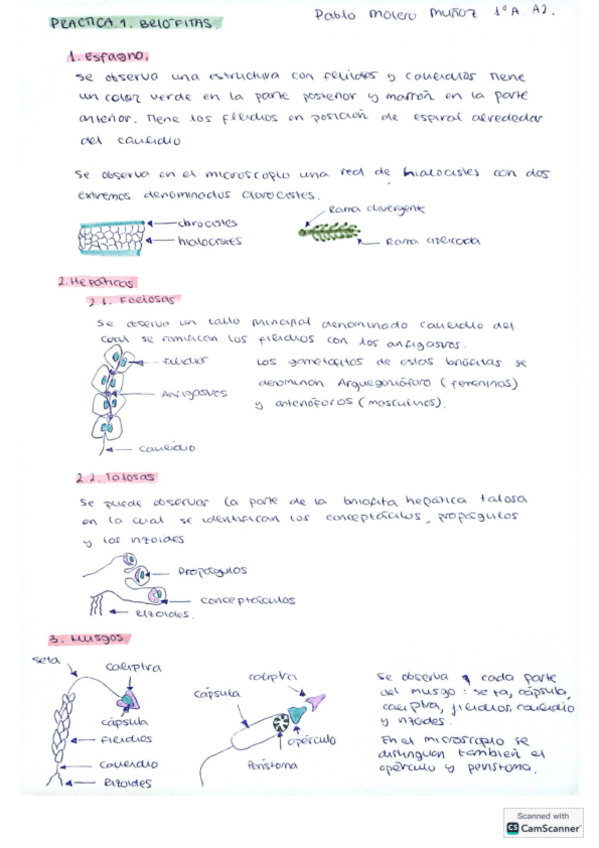 Pablo Molero Muñoz 1ºA A2.
PRÁCTICA 1. BRIÓFITAS.
1. Esfagno.
Se observa una estructura con filidios y caulidios Tiene
un color verde en la parte posterior y marrón en la parte
anterior. Tiene los filidios en posición de espiral alrededor
del caulidio
Se observa en el microscopio una red de hialocistes con dos
extremos denominados clorocistes.
clorocistes
hialocistes
Rama divergente
Rama aplicada
2. Hepáticas
2.1. Foliosas
Se observa un tallo principal denominado caulidio del
cual se ramifican los filidios con los anfigastros.
Filidios
Anfigastros
Caulidio
Los gametofitos de estas briofitas se
denominan Arquegonióforo (femeninos)
y antenóforos (masculinos).
2.2. Talosas
Se puede observar la parte de la briofita hepática talosa
en la cual se identifican los conceptáculos, propágulos
y los rizoides
Propágulos
Conceptáculos
Rizoides.
3. Musgos
seta
caliptra
cápsula
Filidios
Caulidio
Rizoides
caliptra
cápsula
opérculo
Perístoma
Se observa cada parte
del musgo: seta, cápsula,
caliptra, filidios, caulidio
y rizoides.
En el microscopio se
distinguen también el
opérculo y perístoma.
Scanned with
CS CamScanner